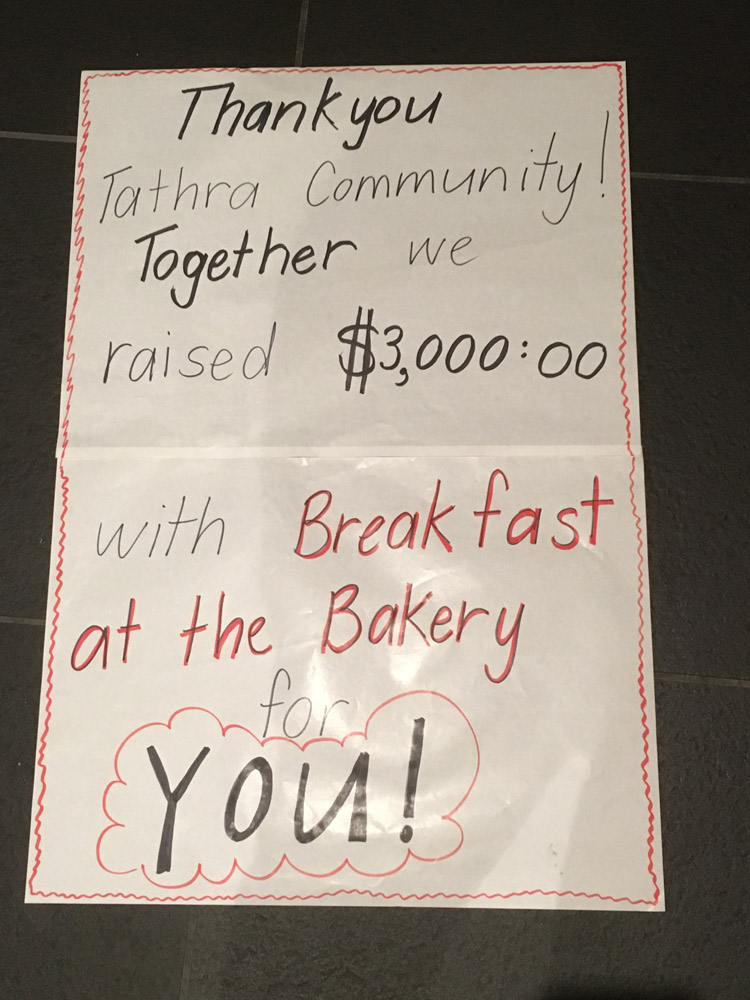 Thankyou
Tathra Community!
Together we
raised $3,000:00
with Breakfast
at the Bakery
for
YOU!